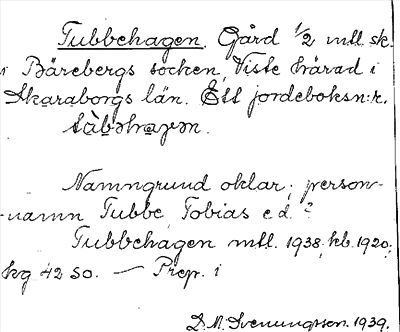 Tubbehagen. Gård 1/2 mtl. sk.
i Bärebergs socken, Viste härad i
Skaraborgs län. Ett jordeboksn:r.
Namngrund oklar; person-
namn Tubbe, Tobias e.d.?
Tubbehagen mtl. 1938, kb. 1920;
kg 42 SO. — Prep. i
D.M. Svenungsson. 1939.